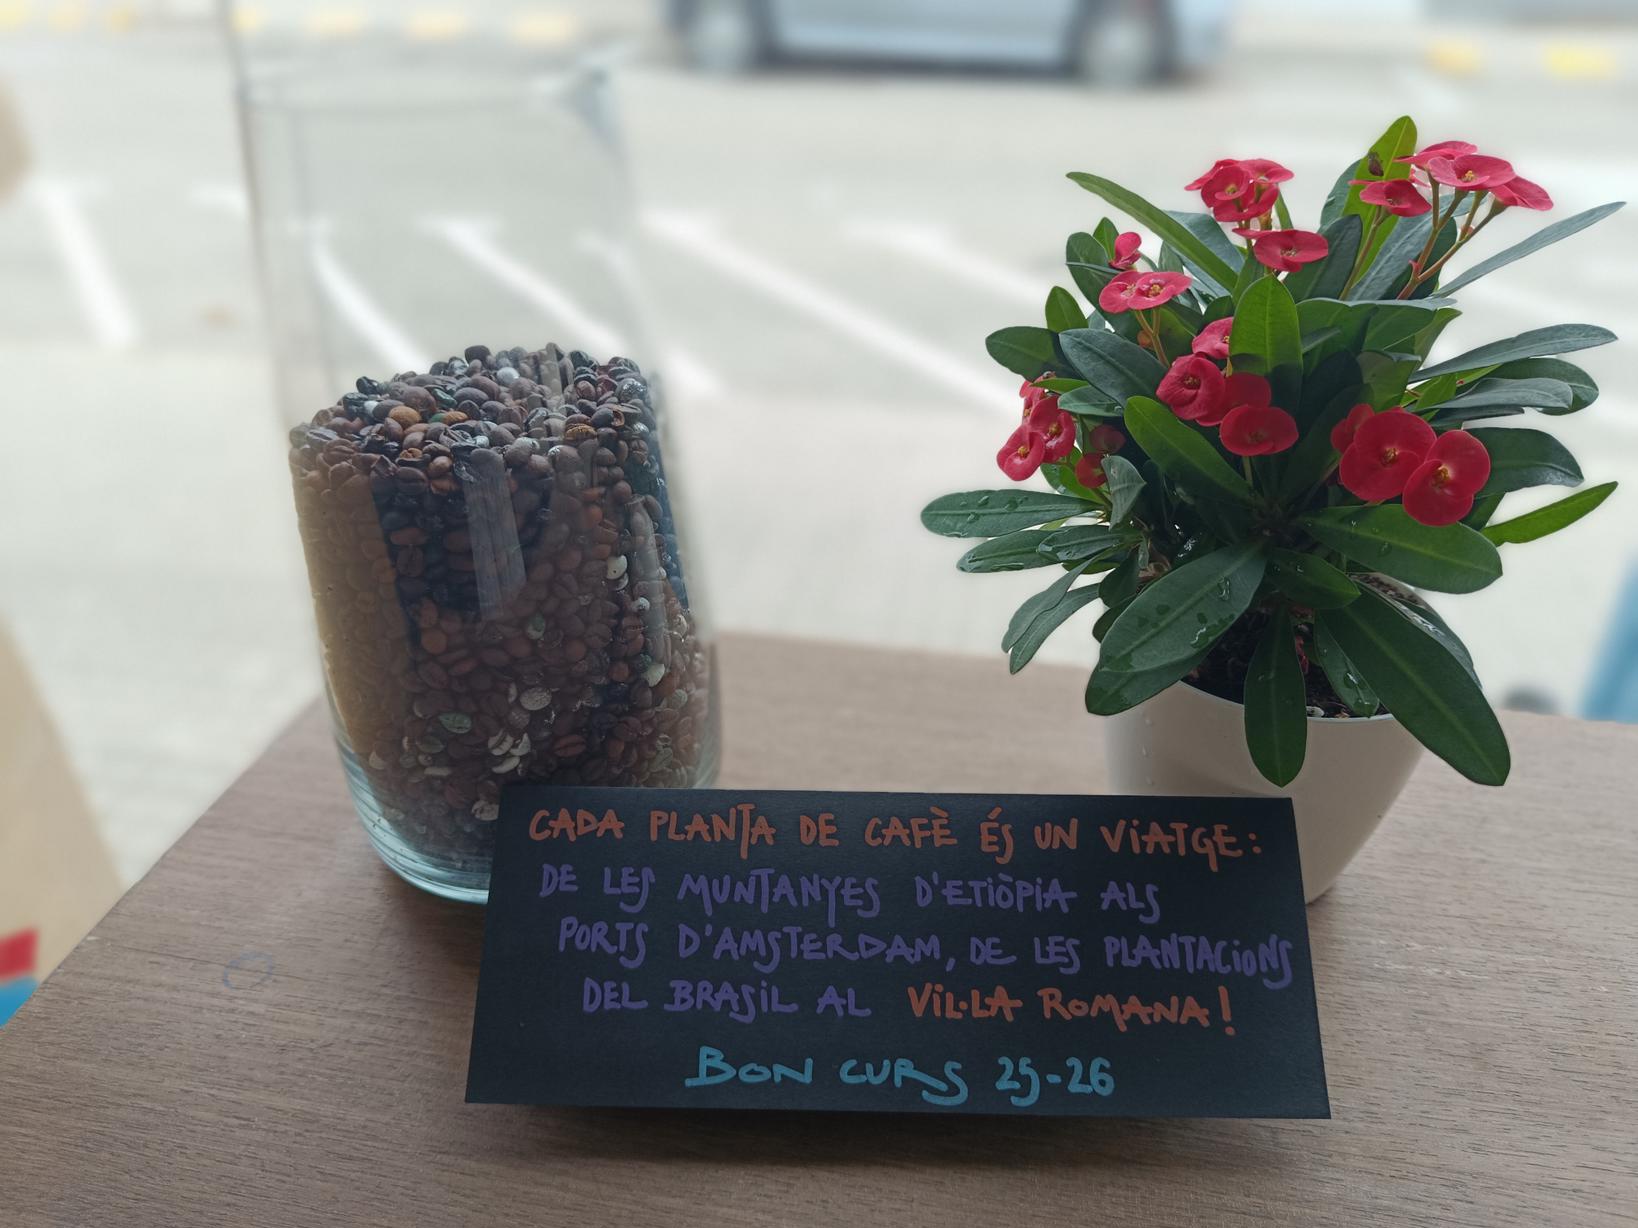 CADA PLANTA DE CAFÈ ÉS UN VIATGE:
DE LES MUNTANYES D'ETIÒPIA ALS
PORTS D'AMSTERDAM, DE LES PLANTACIONS
DEL BRASIL AL VIL·LA ROMANA!
BON CURS 25-26